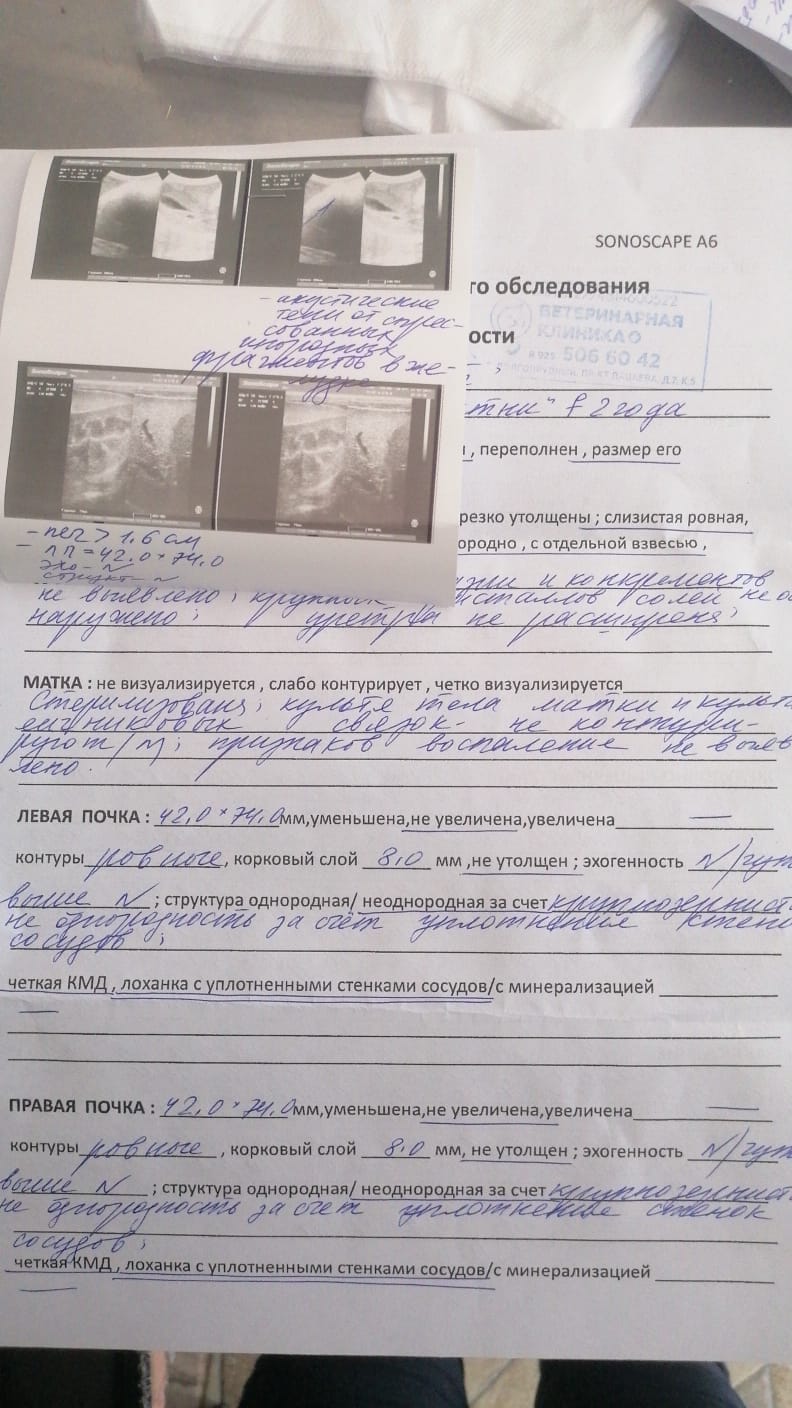 SONOSCAPE A6
го обследования
ВЕТЕРИНАРНАЯ
КЛИНИКА
8 925 506 60 42
ости
- акустические
тени от спрес-
сованных
инородных
фрагментов в же-
лудке
f 2 года
, переполнен , размер его
резко утолщены ; слизистая ровная,
ородно , с отдельной взвесью ,
- печ > 1.6 см
- ЛП = 42.0 × 74.0
эхо- N
и конкрементов
не выявлено; кристаллов солей не об
наружено; уретра не расширена;
МАТКА : не визуализируется , слабо контурирует , четко визуализируется
Стерилизована; культя тела матки и культи
яичниковых связок- не контури-
руют /N; признаков воспаление не выяв
лено.
ЛЕВАЯ ПОЧКА : 42.0 × 74.0 мм,уменьшена,не увеличена,увеличена —
контуры ровные , корковый слой 8.0 мм ,не утолщен ; эхогенность N/чуть
выше N ; структура однородная/ неоднородная за счет крупнозернист
не однородность за счет уплотнения стено
сосудов ;
четкая КМД , лоханка с уплотненными стенками сосудов/с минерализацией
—
ПРАВАЯ ПОЧКА : 42.0 × 74.0 мм,уменьшена,не увеличена,увеличена —
контуры ровные , корковый слой 8.0 мм, не утолщен ; эхогенность N/чуть
выше N ; структура однородная/ неоднородная за счет крупнозернист
не однородность за счет уплотнение стенок
сосудов ;
четкая КМД , лоханка с уплотненными стенками сосудов/с минерализацией
—